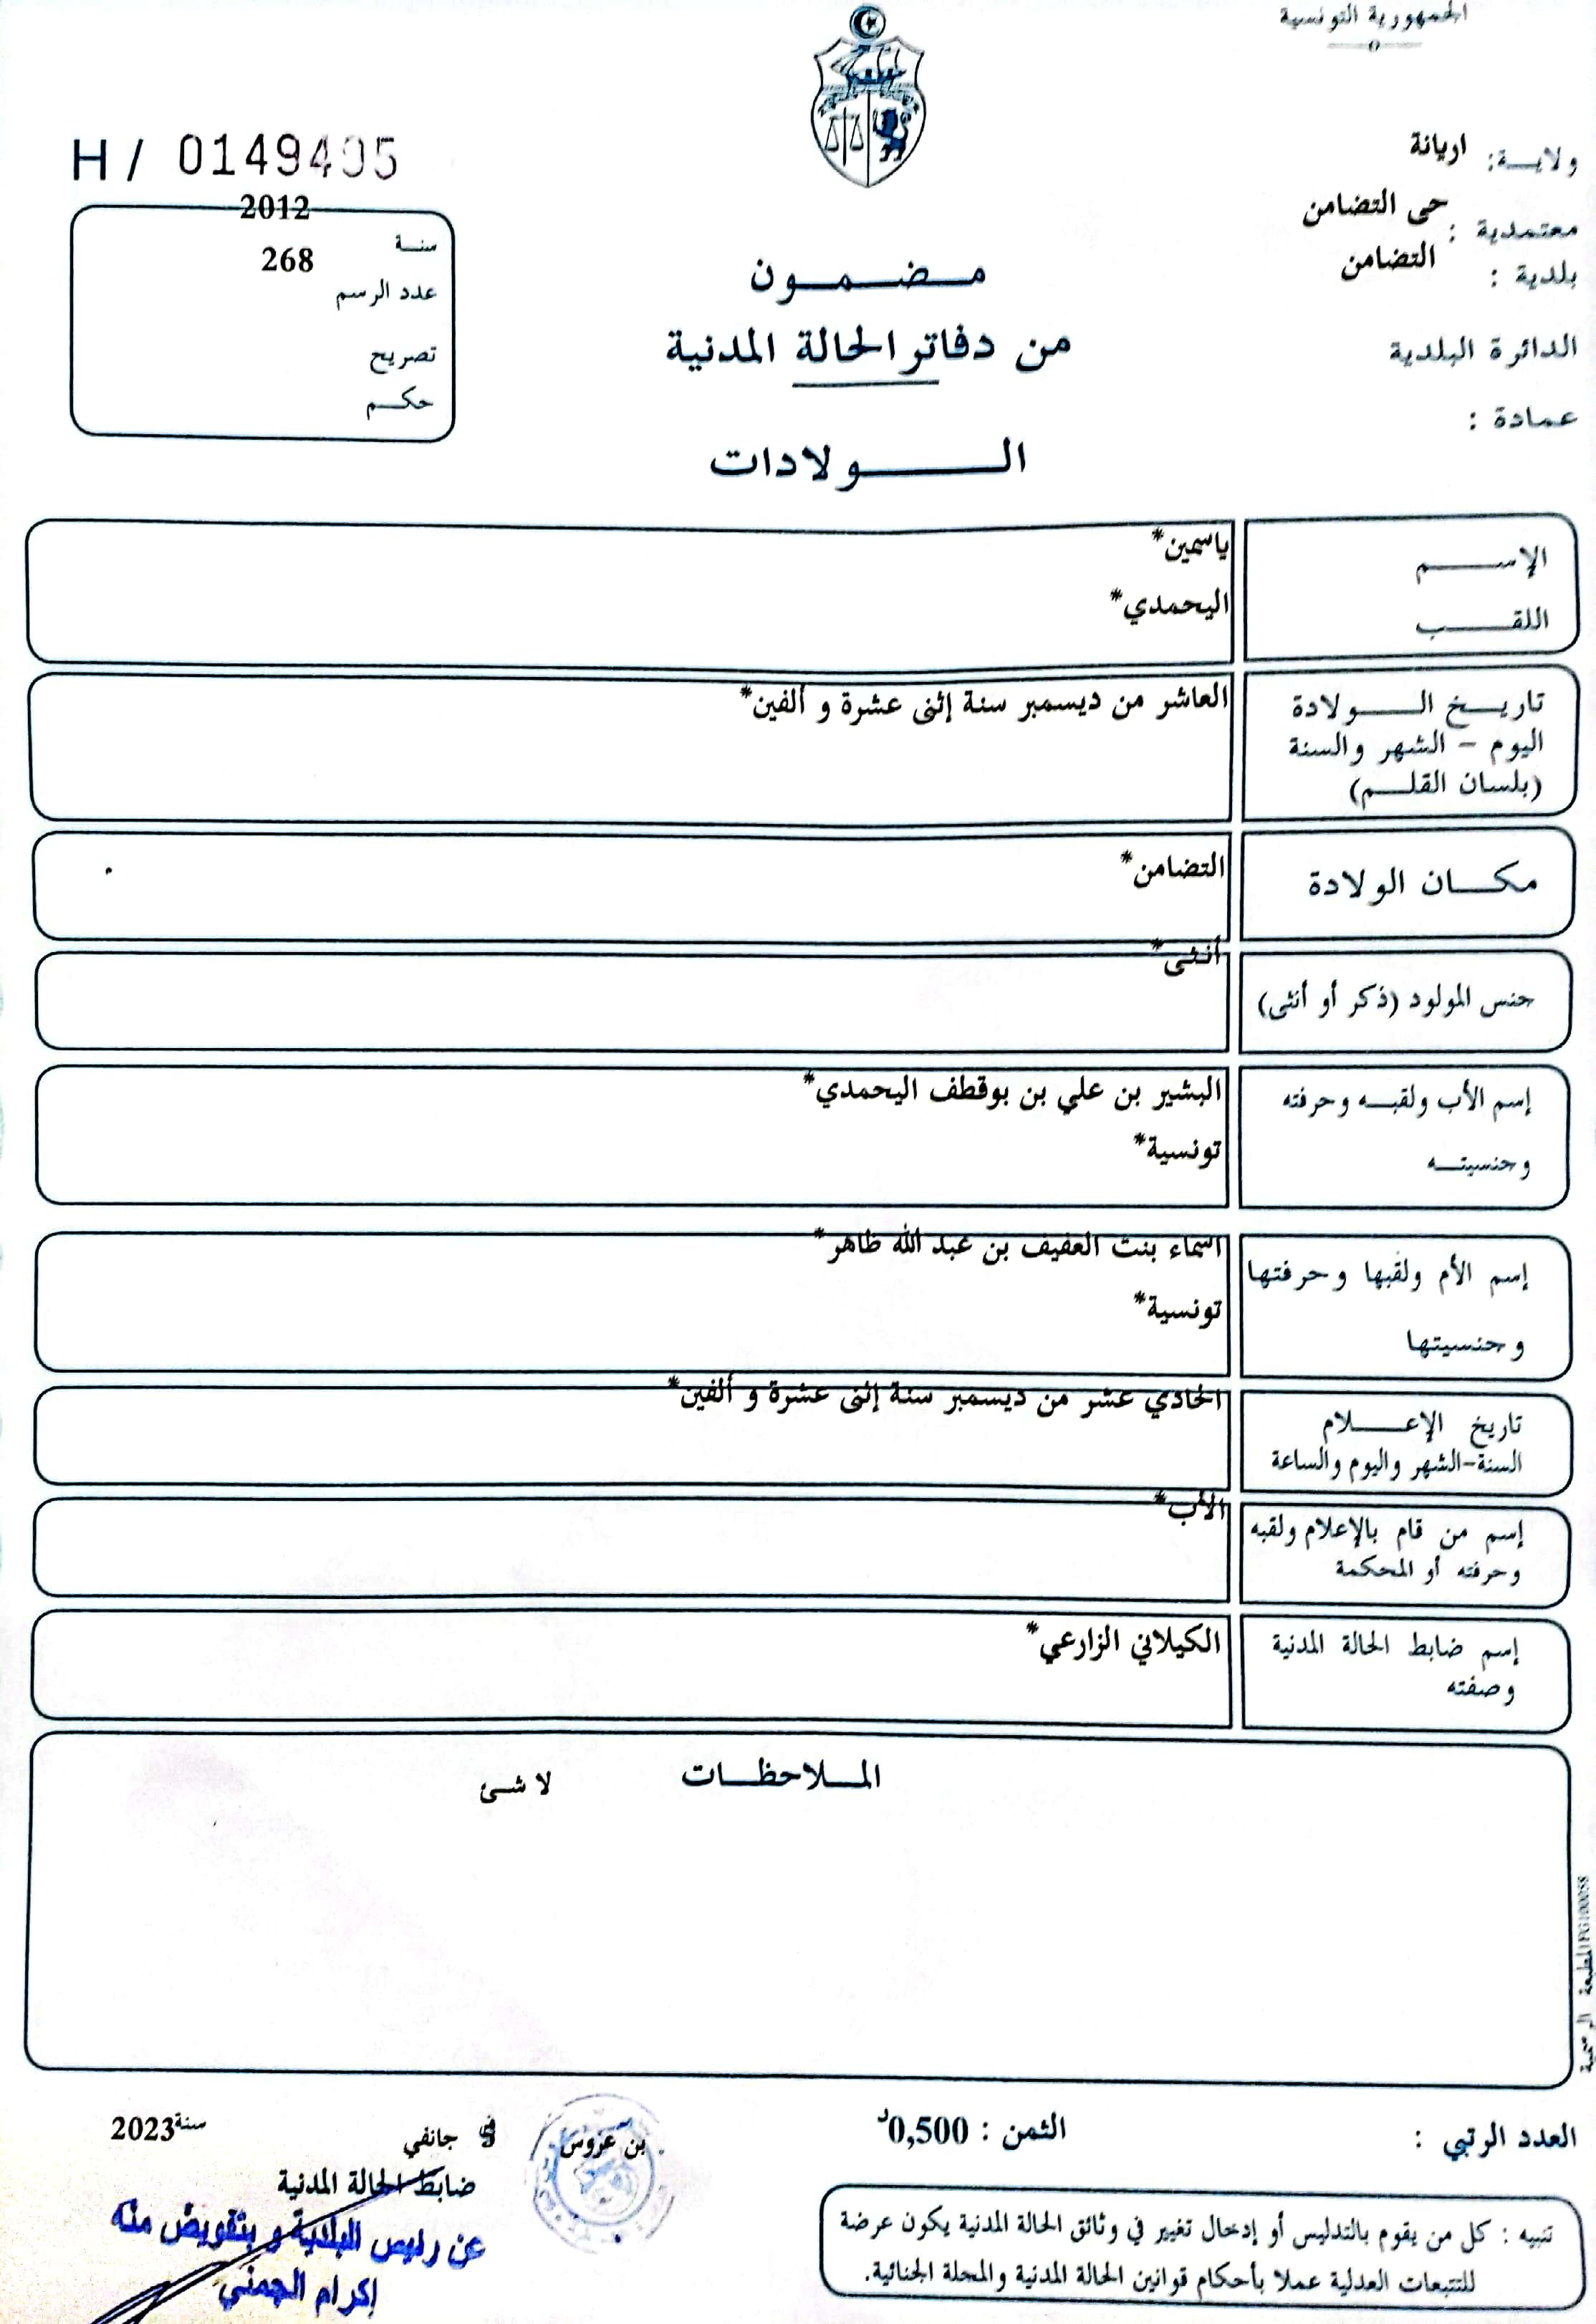 الجمهورية التونسية
ولايـــة: اريانة
معتمدية : حى التضامن
بلدية : التضامن
الدائرة البلدية
عمادة :
H / 0149405
سنــة 2012
عدد الرسم 268
تصريح
حكــم
مــضــمــون
من دفاتر الحالة المدنية
الــــولادات
الإســـــم ياسمين*
اللقـــــب اليحمدي*
تاريــخ الــــولادة العاشر من ديسمبر سنة إثنى عشرة و ألفين*
اليوم - الشهر والسنة
(بلسان القلــم)
مكــان الولادة التضامن*
جنس المولود (ذكر أو أنثى) أنثى*
إسم الأب ولقبــه وحرفته البشير بن علي بن بوقطف اليحمدي*
وجنسيتــه تونسية*
إسم الأم ولقبها وحرفتها اسماء بنت العفيف بن عبد الله ظاهر*
وجنسيتها تونسية*
تاريخ الإعــــلام الحادي عشر من ديسمبر سنة إثنى عشرة و ألفين*
السنة-الشهر واليوم والساعة
إسم من قام بالإعلام ولقبه الأب*
وحرفته أو المحكمة
إسم ضابط الحالة المدنية الكيلاني الزارعي*
وصفته
المــلاحظــات لا شئ
المطبعة الرسمية
العدد الرتبي :
الثمن : 0,500د
بن عروس
جانفي سنة 2023
ضابط الحالة المدنية
عن رئيس البلدية و بتفويض منه
إكرام الجمني
تنبيه : كل من يقوم بالتدليس أو إدخال تغيير في وثائق الحالة المدنية يكون عرضة
للتتبعات العدلية عملا بأحكام قوانين الحالة المدنية والمجلة الجنائية.